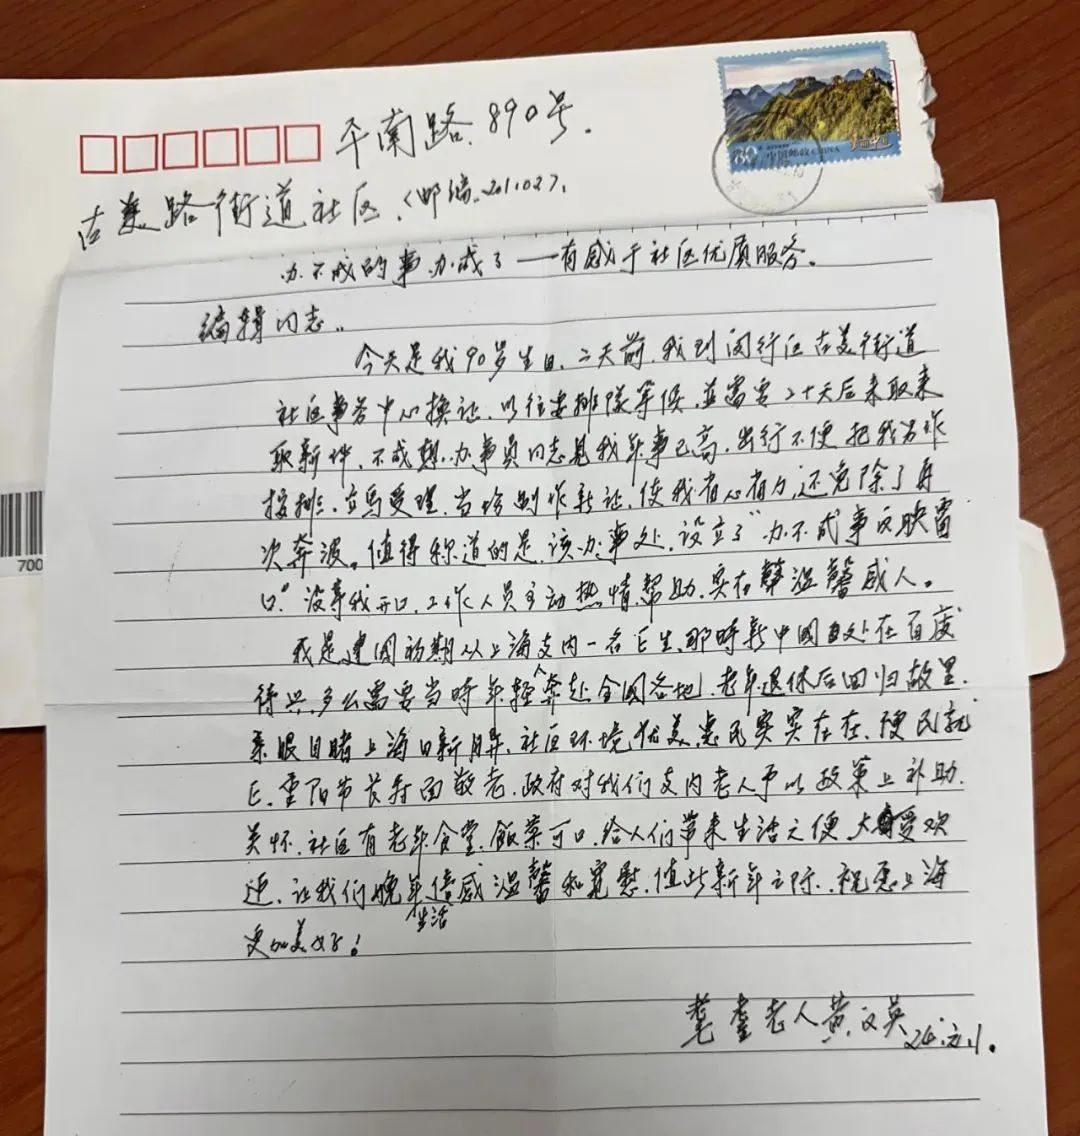 平南路.890号.
古美路街道社区.(邮编.201102).
80 中国邮政 CHINA
700
办不成的事办成了——有感于社区优质服务。
编辑同志..
今天是我90岁生日.二天前.我到闵行区古美街道
社区事务中心换证.以往要排隊等候.並需要二十天后来取来
取新件.不成想.办事员同志見我年事已高.出行不便把我另作
按排.立馬受理.当场制作新证.使我省心省力.还免除了再
次奔波。值得称道的是.该办事处.设立了"办不成事反映窗
口".没等我开口.工作人员主动热情帮助.实在溫馨感人。
我是建國初期从上海支内一名医生.那時新中國处在百废
待兴.多么需要当時年轻人奔赴全國各地.老年退休后回归故里.
亲眼目睹上海日新月异.社区环境优美.惠民实实在在.便民就
医.重阳节长寿面敬老.政府对我们支内老人予以政策上补助.
关怀.社区有老年食堂.飯菜可口.给人们带来生活之便.大受欢
迎.让我们晚年生活倍感溫馨和寬慰.值此新年之际..祝愿上海
更加美好!
耄耋老人黄文英 24.元.1.